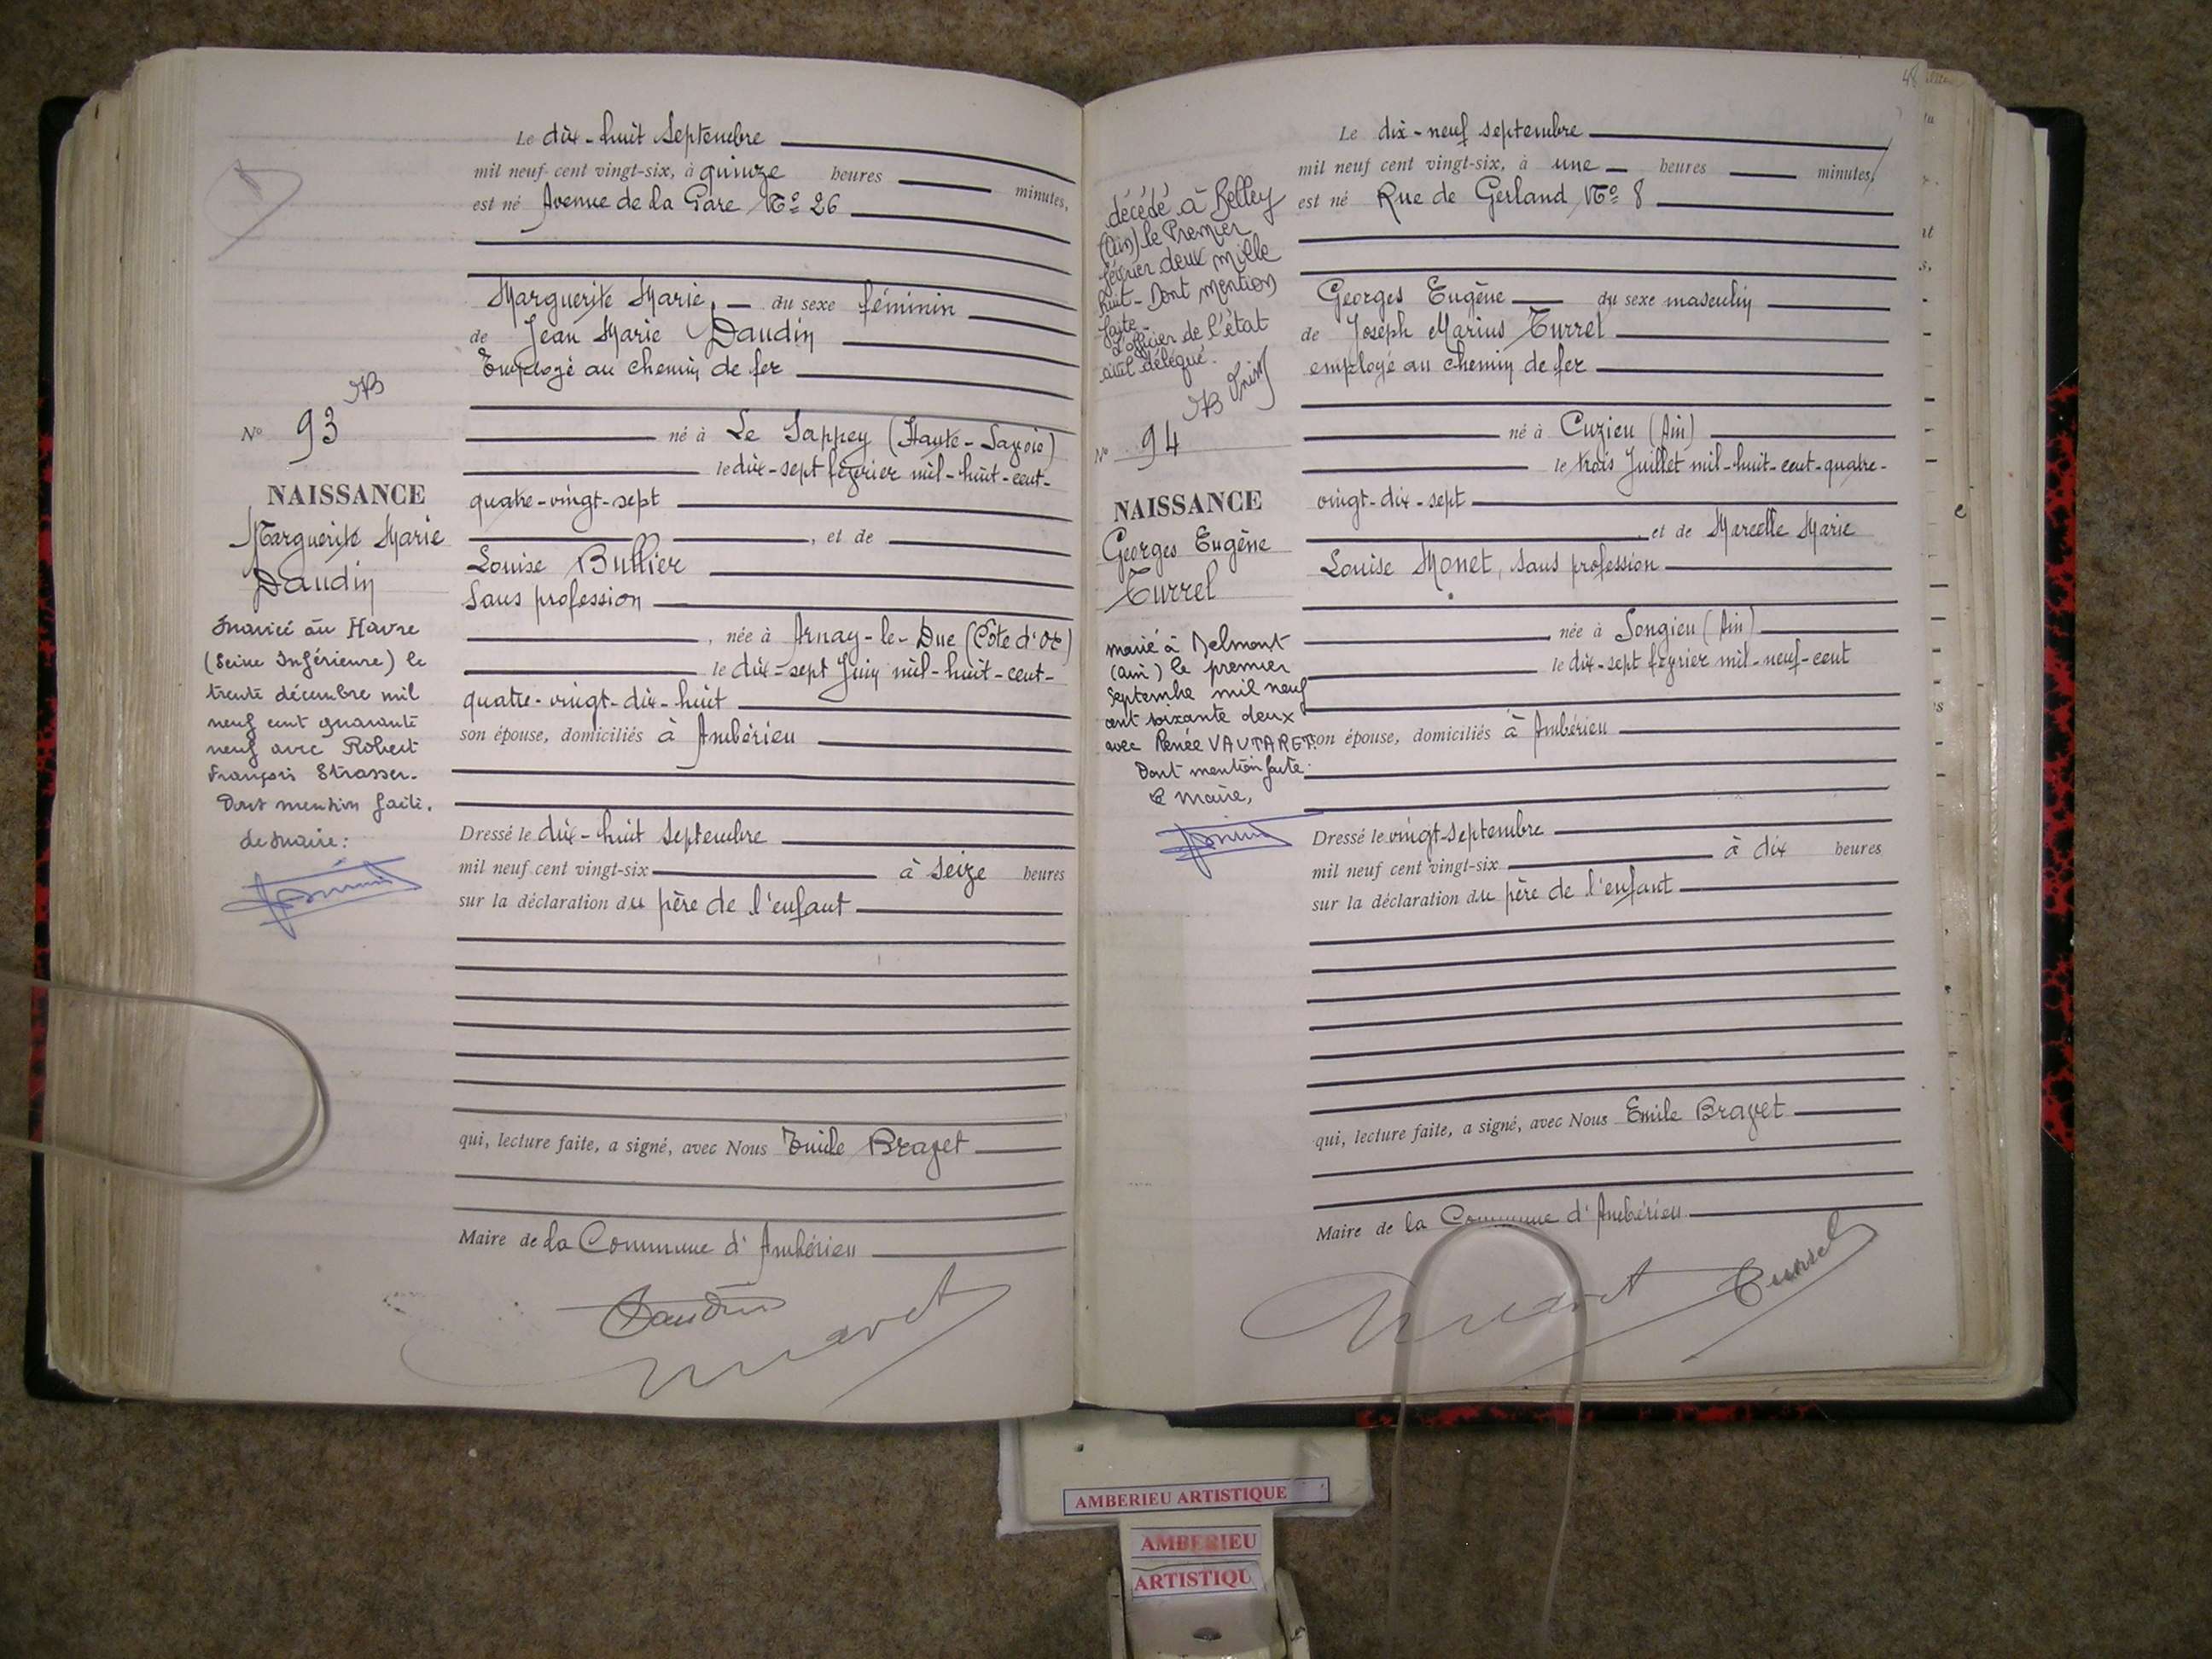 Le dix-huit Septembre
mil neuf cent vingt-six, à quinze heures minutes,
est né Avenue de la Gare No 26
Marguerite Marie, du sexe féminin
de Jean Marie Daudin
Employé au chemin de fer
né à Le Sappey (Haute-Savoie)
le dix-sept février mil-huit-cent-
quatre-vingt-sept
, et de
Louise Bullier
Sans profession
, née à Arnay-le-Duc (Côte d'Or)
le dix-sept Juin mil-huit-cent-
quatre-vingt-dix-huit
son épouse, domiciliés à Ambérieu
Dressé le dix-huit Septembre
mil neuf cent vingt-six à seize heures
sur la déclaration du père de l'enfant
qui, lecture faite, a signé, avec Nous Emile Bravet
Maire de la Commune d'Ambérieu
Daudin
Bravet
No 93
NAISSANCE
Marguerite Marie
Daudin
Mariée au Havre
(Seine Inférieure) le
trente décembre mil
neuf cent quarante
neuf avec Robert
François Strasser.
Dont mention faite.
Le Maire:
48
Le dix-neuf septembre
mil neuf cent vingt-six, à une heures minutes,
est né Rue de Gerland No 8
Georges Eugène du sexe masculin
de Joseph Marius Turrel
employé au chemin de fer
né à Cuzieu (Ain)
le trois Juillet mil-huit-cent-quatre-
vingt-dix-sept
et de Marcelle Marie
Louise Monet, sans profession
, née à Songieu (Ain)
le dix-sept février mil-neuf-cent
son épouse, domiciliés à Ambérieu
Dressé le vingt-septembre
mil neuf cent vingt-six à dix heures
sur la déclaration du père de l'enfant
qui, lecture faite, a signé, avec Nous Emile Bravet
Maire de la Commune d'Ambérieu
Bravet Turrel
décédé à Belley
(Ain) le Premier
février deux mille
huit - Dont mention
faite -
L'officier de l'état
civil délégué.
No 94
NAISSANCE
Georges Eugène
Turrel
marié à Belmont
(ain) le premier
septembre mil neuf
cent soixante deux
avec Renée VAUTARET.
Dont mention faite.
Le Maire,
AMBERIEU ARTISTIQUE
AMBERIEU
ARTISTIQU